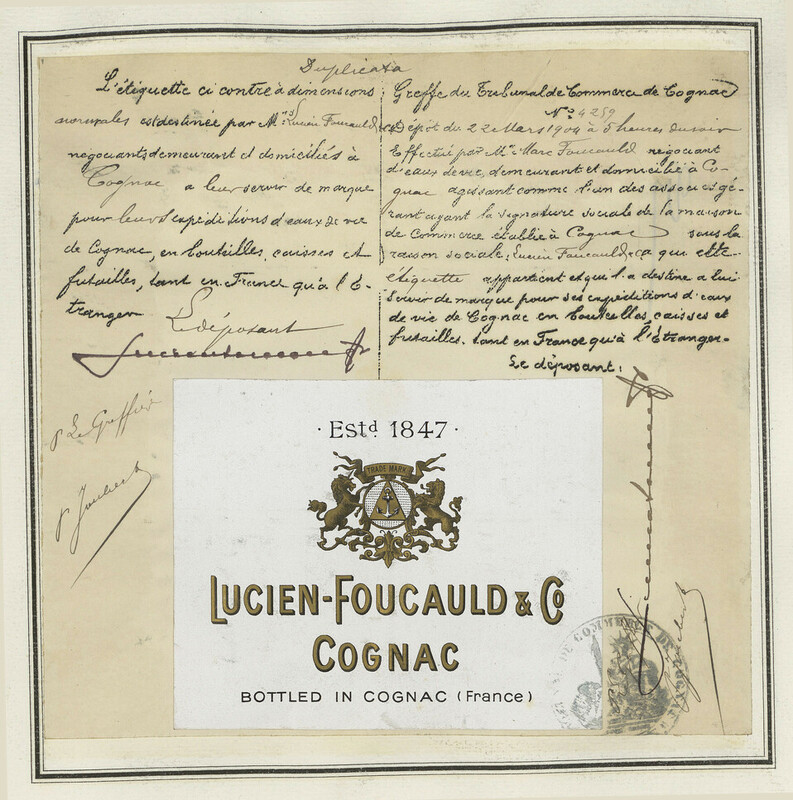 Duplicata
L'étiquette ci contre à dimensions
normales est destinée par Mrs Lucien Foucauld & Co
négociants demeurant et domiciliés à
Cognac a leur servir de marque
pour leurs expéditions d'eaux de vie
de Cognac, en bouteilles, caisses et
futailles, tant en France qu'à l'é-
tranger
Le déposant
p Le Greffier
p Joubert
Greffe du Tribunal de Commerce de Cognac
No 4259
Dépôt du 22 Mars 1904 à 5 heures du soir
Effectué par Mr Marc Foucauld négociant
d'eaux de vie, demeurant et domicilié à Co-
gnac agissant comme l'un des associés gé-
rant ayant la signature sociale de la maison
de Commerce établie à Cognac sous la
raison sociale: Lucien Foucauld & Ca qui cette
étiquette appartient et qui l'a destine a lui
servir de marque pour ses expéditions d'eaux
de vie de Cognac en bouteilles, caisses et
futailles. tant en France qu'à l'étranger-
Le déposant:
· Estd 1847 ·
TRADE MARK
LUCIEN-FOUCAULD & Co
COGNAC
BOTTLED IN COGNAC (France)
DE COMMERCE DE